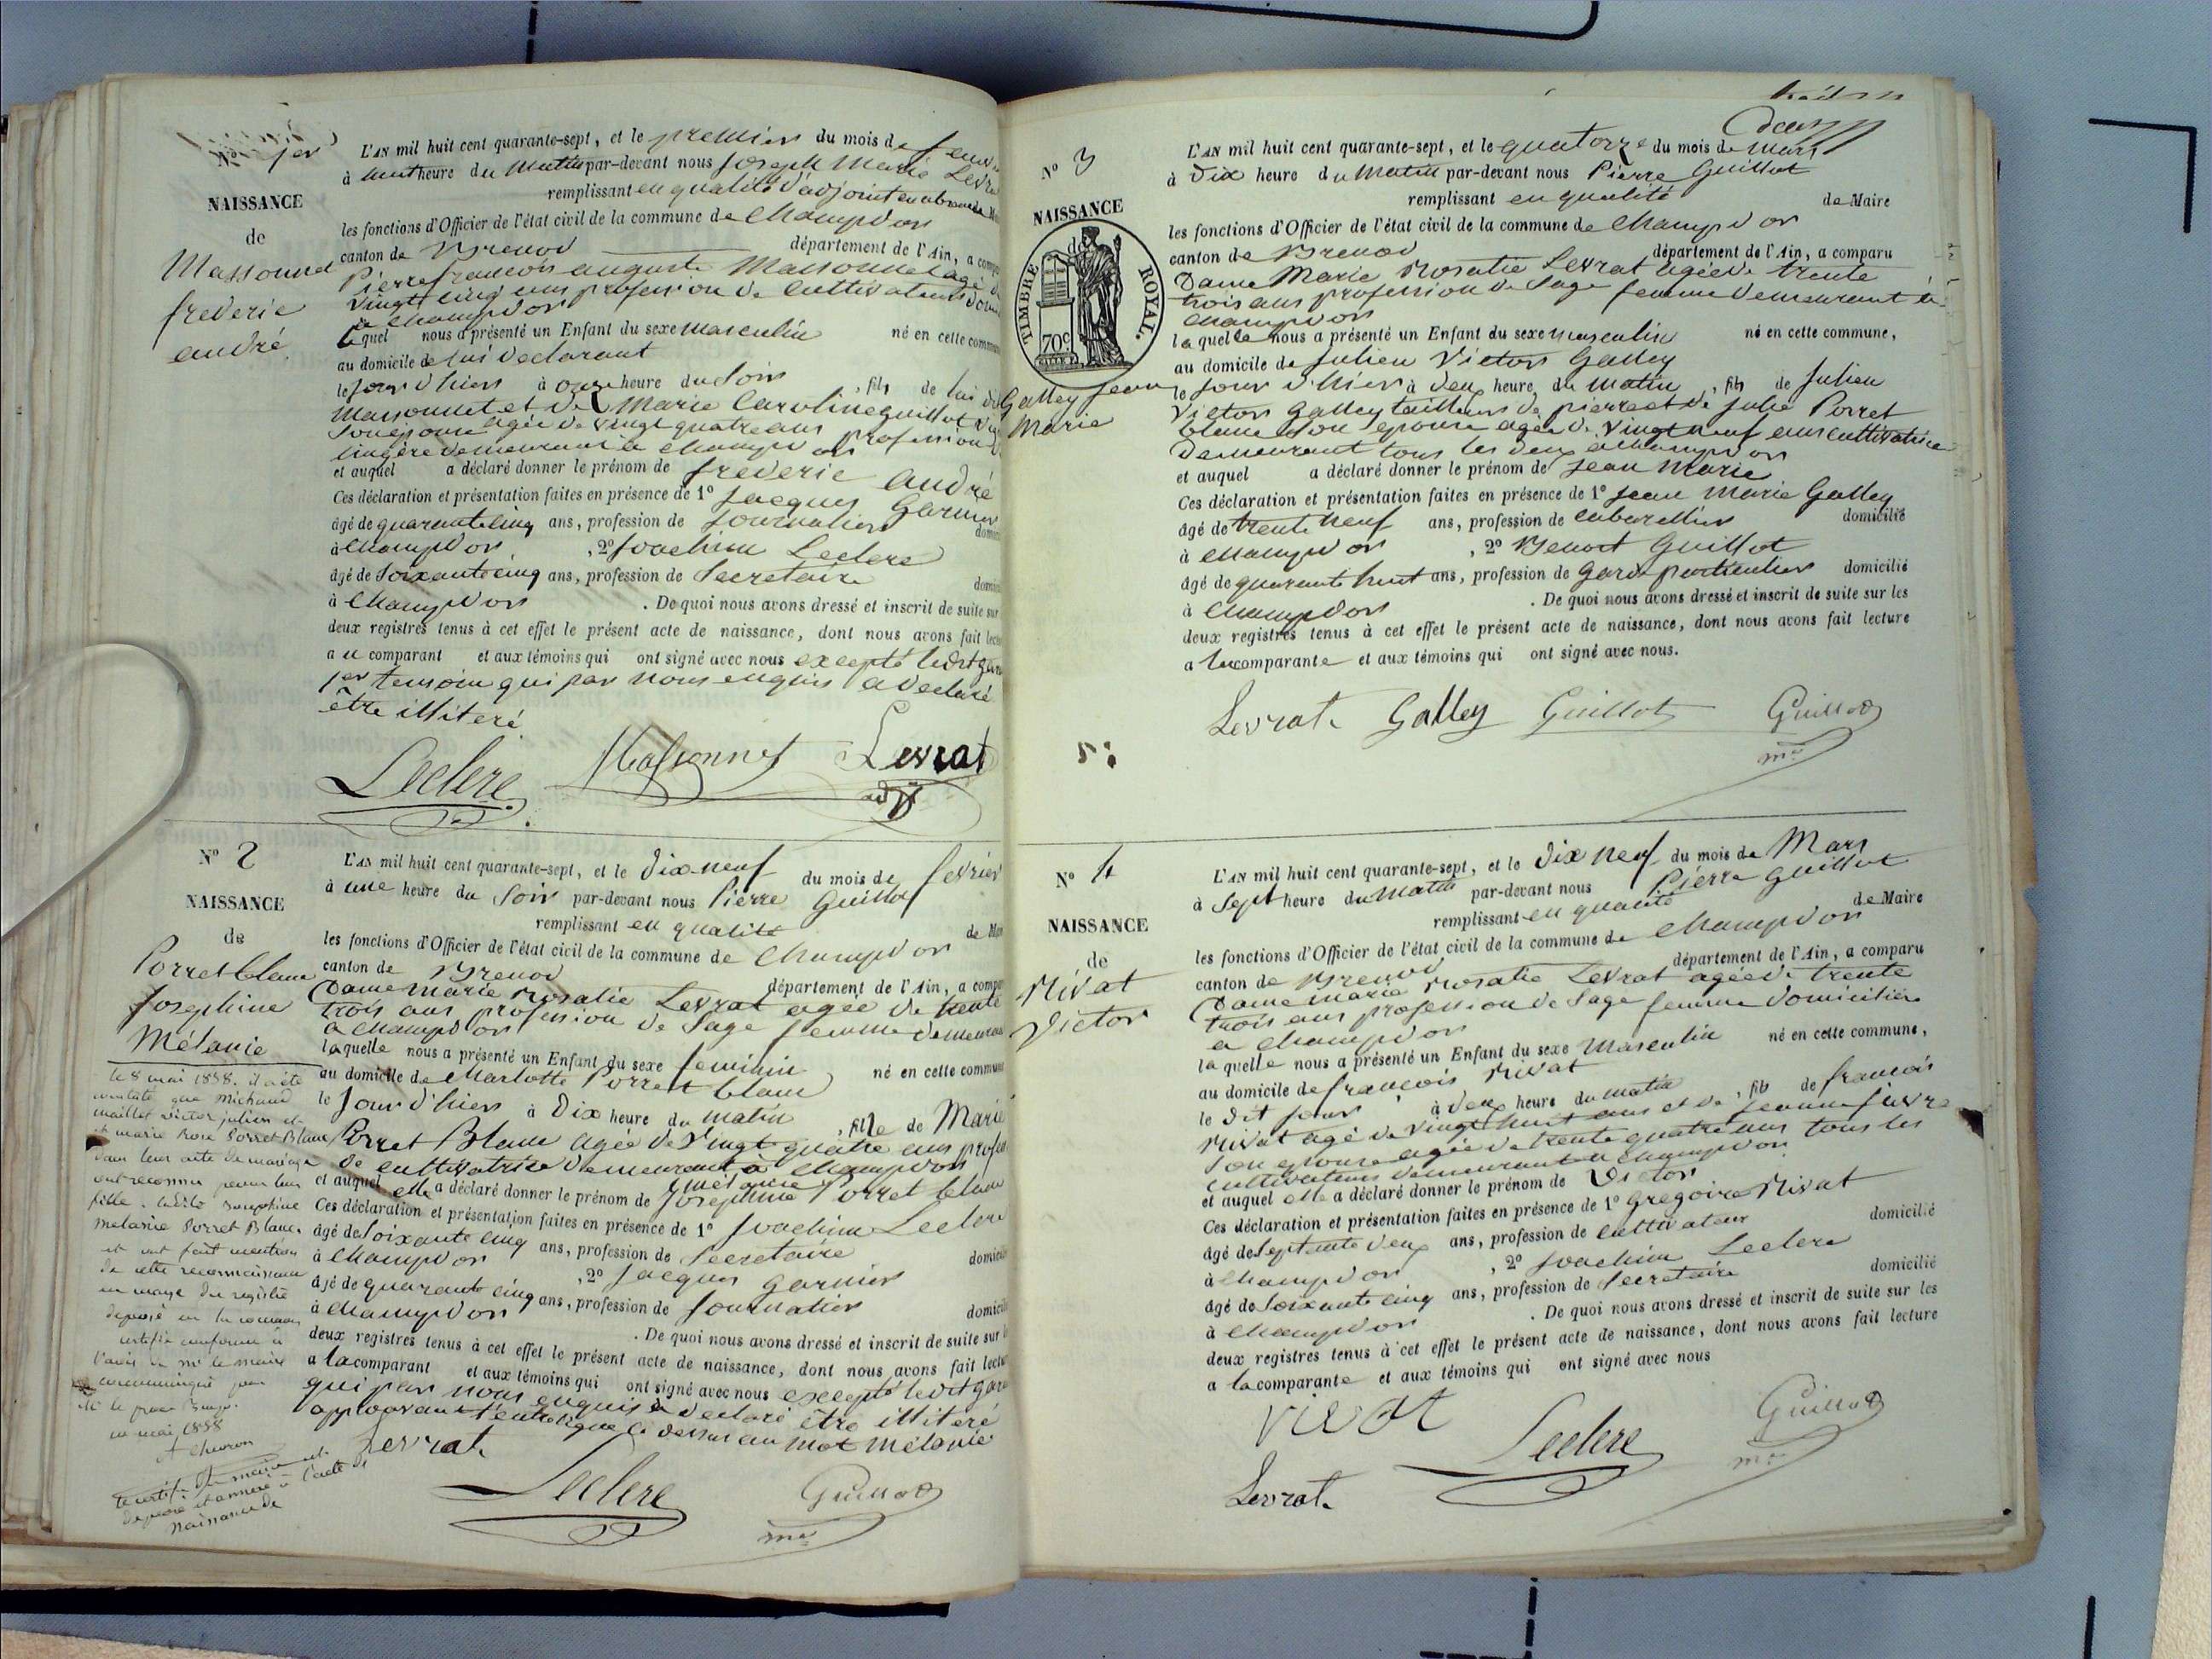 No 1er
NAISSANCE
de
Massonnet
frederic
andré
L'AN mil huit cent quarante-sept, et le premier du mois de
à huit heure du Matin par-devant nous Joseph Marie
remplissant en qualité d'adjoint en absence de
les fonctions d'Officier de l'état civil de la commune de Champdor
canton de Brenod département de l'Ain, a
Pierre francois auguste Massonnet agé
vingt cinq ans profession de Cultivateur
a Champdor
lequel nous a présenté un Enfant du sexe masculin né en cette
au domicile de lui declarant
le jour d'hier à onze heure du soir, fils de lui
Massonnet et de Marie Caroline guillot
son epouse agée de vingt quatre ans profession
lingère demeurant a Champdor
et auquel a déclaré donner le prénom de frederic André
Ces déclaration et présentation faites en présence de 1o Jacques Garnier
âgé de quarante cinq ans, profession de Journalier
à Champdor, 2o Joachim Leclerc
âgé de Soixante cinq ans, profession de Secretaire
à Champdor. De quoi nous avons dressé et inscrit de suite sur
deux registres tenus à cet effet le présent acte de naissance, dont nous avons fait
au comparant et aux témoins qui ont signé avec nous excepté ledit
1er temoin qui par nous enquis a declaré
être illiteré
Leclerc Massonnet Levrat
adjt
No 2
NAISSANCE
de
Porret blanc
Josephine
Mélanie
le 8 mai 1858. il a été
constaté que Michaud
maillet victor julien et
et marie Rose Porret Blanc
dans leur acte de mariage
ont reconnu pour leur
fille Josephine
Melanie Porret Blanc
et ont fait mention
de cette reconnaissance
en marge du registre
deposé en la commune
certifié conforme à
l'avis de mr le maire
communiqué par
mai 1858
L'AN mil huit cent quarante-sept, et le Dix neuf du mois de fevrier
à une heure du Soir par-devant nous Pierre Guillot
remplissant en qualité de
les fonctions d'Officier de l'état civil de la commune de Champdor
canton de Brenod département de l'Ain, a
Dame Marie Rosalie Levrat agée de trente
trois ans profession de Sage femme
a Champdor
laquelle nous a présenté un Enfant du sexe feminin né en cette
au domicile de Charlotte Porret blanc
le Jour d'hier à Dix heure du matin, fille de Marie
Porret Blanc agée de Vingt quatre ans
de cultivatrice demeurant à Champdor
Mélanie
et auquel elle a déclaré donner le prénom de Josephine Porret blanc
Ces déclaration et présentation faites en présence de 1o Joachim Leclerc
âgé de Soixante cinq ans, profession de Secretaire
à Champdor, 2o Jacques garnier
âgé de quarante cinq ans, profession de Journalier
à Champdor. De quoi nous avons dressé et inscrit de suite sur
deux registres tenus à cet effet le présent acte de naissance, dont nous avons fait
a la comparant et aux témoins qui ont signé avec nous excepté ledit
qui par nous enquis a declaré être illiteré
approuvant ci dessus au mot Mélanie
Levrat
Leclerc Guillot
me
No 3
NAISSANCE
de
TIMBRE ROYAL.
70c
Galley Jean
Marie
L'AN mil huit cent quarante-sept, et le quatorze du mois de mars
à Dix heure du Matin par-devant nous Pierre Guillot
remplissant en qualité de Maire
les fonctions d'Officier de l'état civil de la commune de Champdor
canton de Brenod département de l'Ain, a comparu
Dame Marie Rosalie Levrat agée de trente
trois ans profession de Sage femme demeurant à
Champdor
laquelle nous a présenté un Enfant du sexe masculin né en cette commune,
au domicile de Julien Victor Galley
le Jour d'hier à deux heure du Matin, fils de Julien
Victor Galley tailleur de pierre et de Julie Porret
blanc son epouse agée de vingt neuf ans cultivatrice
Demeurant tous les deux a Champdor
et auquel a déclaré donner le prénom de Jean Marie
Ces déclaration et présentation faites en présence de 1o Jean Marie Galley
âgé de trente neuf ans, profession de cabarettier domicilié
à Champdor, 2o Benoit Guillot
âgé de quarante huit ans, profession de Garde particulier domicilié
à Champdor. De quoi nous avons dressé et inscrit de suite sur les
deux registres tenus à cet effet le présent acte de naissance, dont nous avons fait lecture
a la comparante et aux témoins qui ont signé avec nous.
Levrat Galley Guillot Guillot
me
No 4
NAISSANCE
de
Nivat
Victor
L'AN mil huit cent quarante-sept, et le Dix neuf du mois de Mars
à Sept heure du Matin par-devant nous Pierre Guillot
remplissant en qualité de Maire
les fonctions d'Officier de l'état civil de la commune de Champdor
canton de Brenod département de l'Ain, a comparu
Dame marie Rosalie Levrat agée de trente
trois ans profession de Sage femme domiciliée
a Champdor
laquelle nous a présenté un Enfant du sexe Masculin né en cette commune,
au domicile de francois Nivat
le Dit Jour à deux heure du matin, fils de francois
Nivat agé de vingt huit ans et de Jeanne
son epouse agée de trente quatre ans tous les
cultivateurs demeurant a Champdor
et auquel elle a déclaré donner le prénom de Victor
Ces déclaration et présentation faites en présence de 1o Gregoire Nivat
âgé de Septante deux ans, profession de Cultivateur domicilié
à Champdor, 2o Joachim Leclerc
âgé de Soixante cinq ans, profession de Secretaire domicilié
à Champdor. De quoi nous avons dressé et inscrit de suite sur les
deux registres tenus à cet effet le présent acte de naissance, dont nous avons fait lecture
a la comparante et aux témoins qui ont signé avec nous
Nivat Leclerc Guillot
me
Levrat